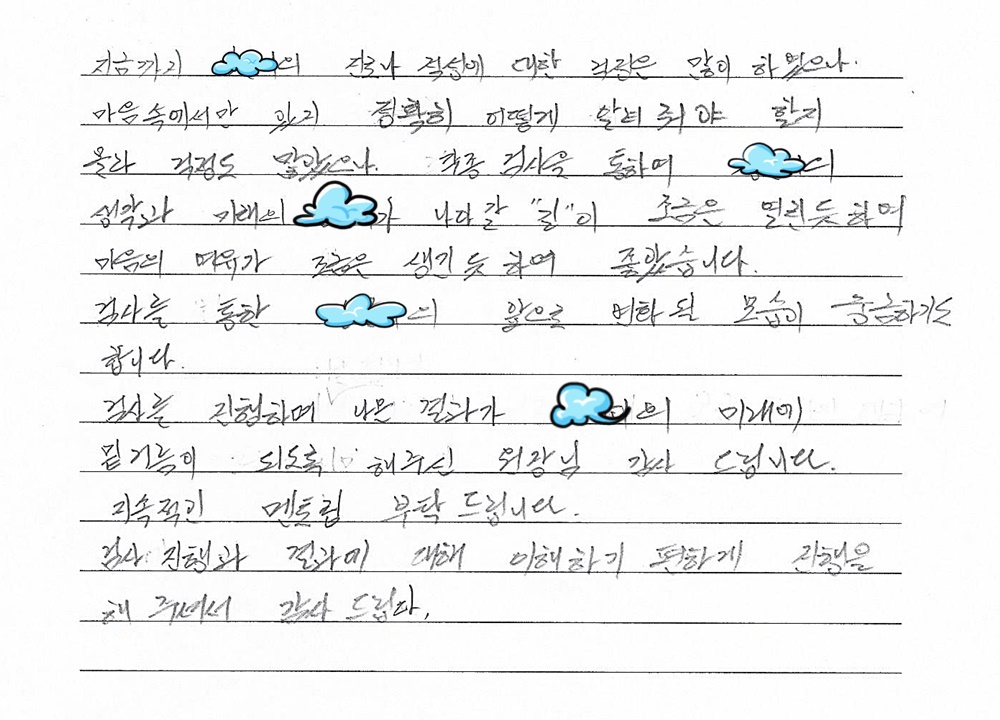 지금까지 의 진로나 적성에 대한 걱정은 많이 하였으나.
마음속에서만 있지 정확히 어떻게 알려줘야 할지
몰라 걱정도 많았으나. 검사을 통하여
생각과 미래의 가 나아갈 "길"이 조금은 열린듯 하여
마음의 여유가 조금은 생긴듯 하여 좋았습니다.
검사를 통한 의 앞으로 변화 될 모습이 궁금하기도
합니다.
검사를 진행하며 나온 결과가 의 미래에
밑거름이 되도록 해주신 원장님 감사 드립니다.
지속적인 멘토링 부탁 드립니다.
검사 진행과 결과에 대해 이해하기 편하게 진행을
해 주셔서 감사 드립다.